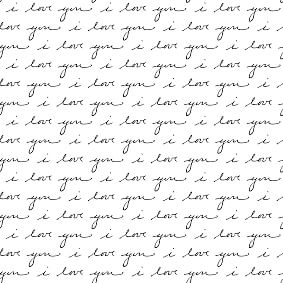 i love you i love you i love you
love you i love you i love you i
you i love you i love you i love
i love you i love you i love you
love you i love you i love you i
you i love you i love you i love
i love you i love you i love you
love you i love you i love you i
you i love you i love you i love
i love you i love you i love you
love you i love you i love you i
you i love you i love you i love
i love you i love you i love you
love you i love you i love you i
you i love you i love you i love